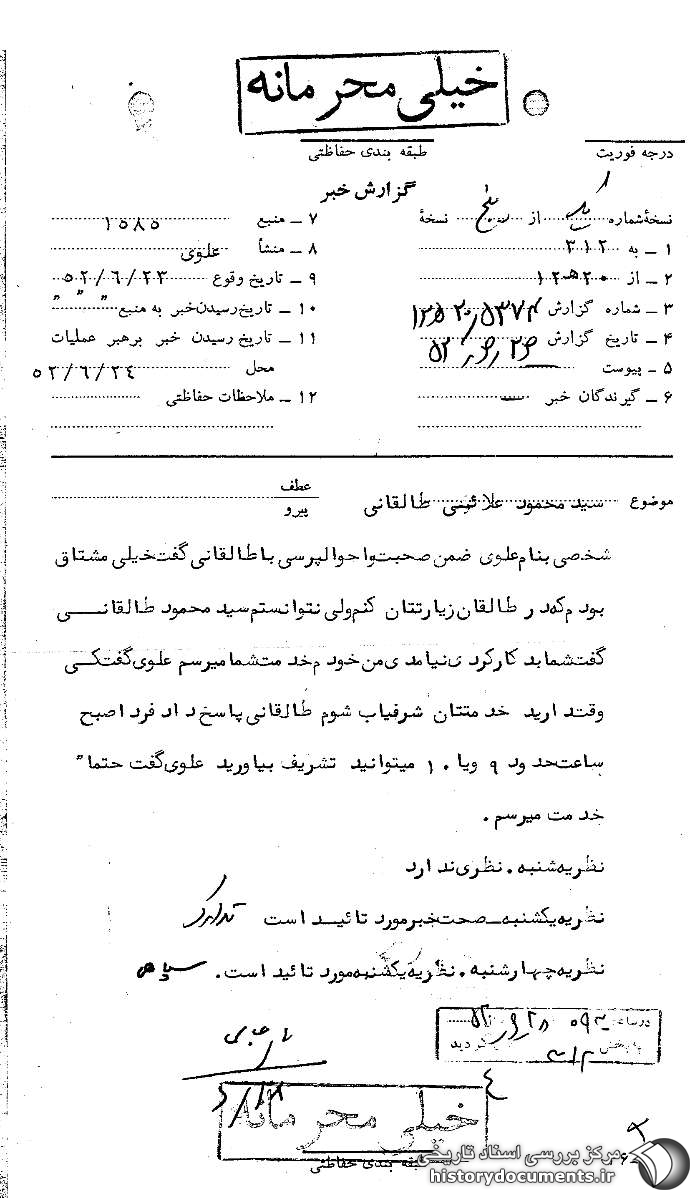 خیلی محرمانه
درجه فوریت
طبقه بندی حفاظتی
گزارش خبر
نسخهٔ شماره یک از پنج نسخهٔ
۱ ـ به ۳۱۲
۲ ـ از ۲۰ هـ ۱۲
۳ ـ شماره گزارش
۴ ـ تاریخ گزارش
۵ ـ پیوست
۶ ـ گیرندگان خبر
۷ ـ منبع ۱۵۸۵
۸ ـ منشأ علوی
۹ ـ تاریخ وقوع ۵۲/۶/۲۳
۱۰ ـ تاریخ رسیدن خبر به منبع " " "
۱۱ ـ تاریخ رسیدن خبر برهبر عملیات
محل ۵۲/۶/۲۴
۱۲ ـ ملاحظات حفاظتی
موضوع سید محمود علائینی طالقانی
عطف
پیرو
شخصی بنام علوی ضمن صحبت و احوالپرسی با طالقانی گفت خیلی مشتاق
بودم که در طالقان زیارتتان کنم ولی نتوانستم سید محمود طالقانی
گفت شما بد کار کردی نیامدی من خودم خدمت شما میرسم علوی گفت کی
وقت دارید خدمتتان شرفیاب شوم طالقانی پاسخ داد فردا صبح
ساعت حدود ۹ ویا ۱۰ میتوانید تشریف بیاورید علوی گفت حتما"
خدمت میرسم .
نظریه شنبه . نظری ندارد
نظریه یکشنبه ـ صحت خبر مورد تائید است
نظریه چهارشنبه . نظریه یکشنبه مورد تائید است .
در ساعت
بخش ۳۱۲ گردید
خیلی محرمانه
طبقه بندی حفاظتی
مرکز بررسی اسناد تاریخی
historydocuments.ir